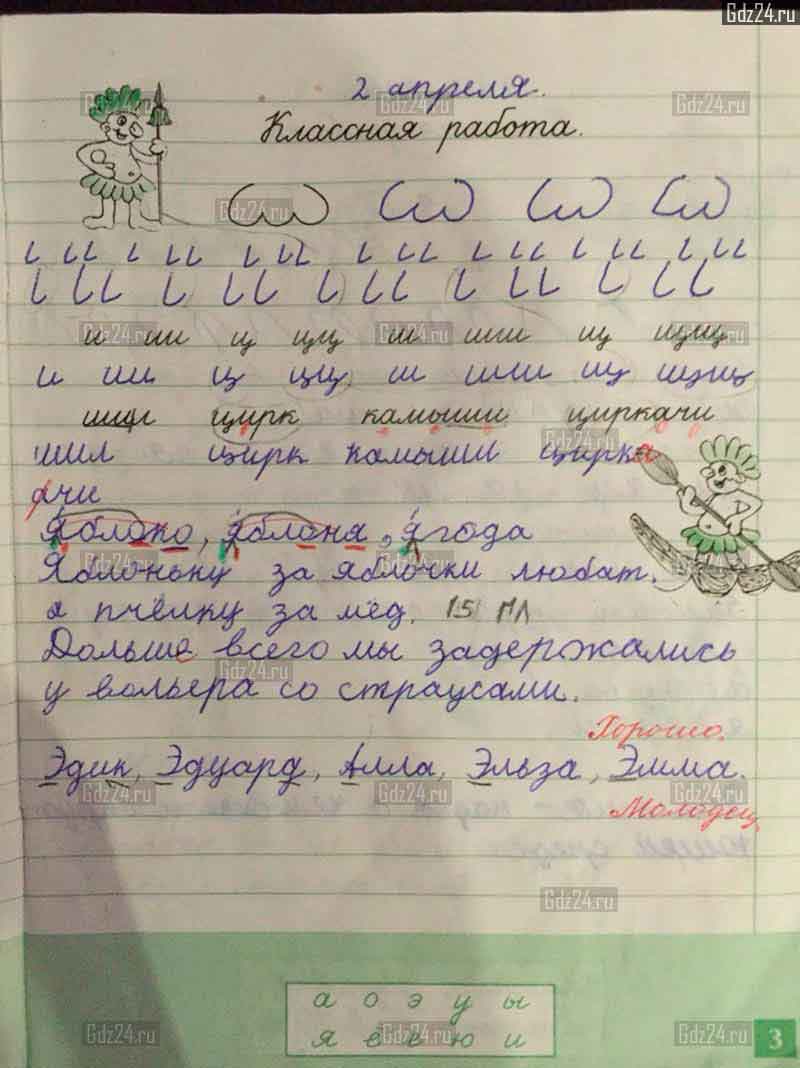 Gdz24.ru
2 апреля.
Классная работа.
и ии ц цц ш шш щ щщ
и ии ц цц ш шш щ щщ
шил цирк камыши циркачи
шил цирк камыши цирка
чи
Яблоко, яблоня, ягода
Яблоньку за яблочки любят,
а пчёлку за мёд. 15 ПЛ
Дольше всего мы задержались
у вольера со страусами.
Хорошо.
Эдик, Эдуард, Алла, Эльза, Эмма.
Молодец
а о э у ы
я ё е ю и
3